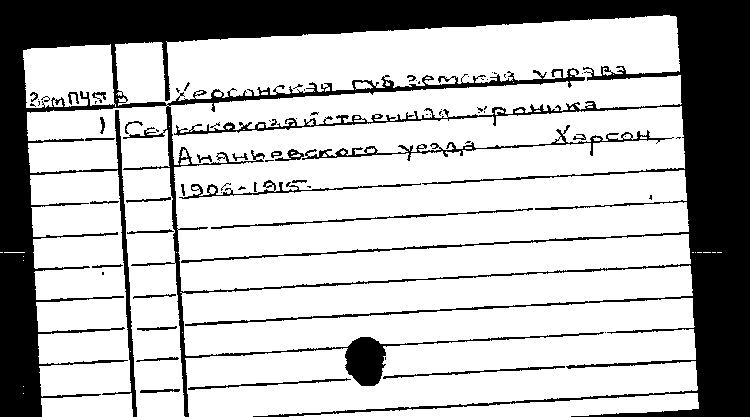 Херсонская губ. земская управа
1 Сельскохозяйственная хроника
Ананьевского уезда. Херсон,
1906-1915.